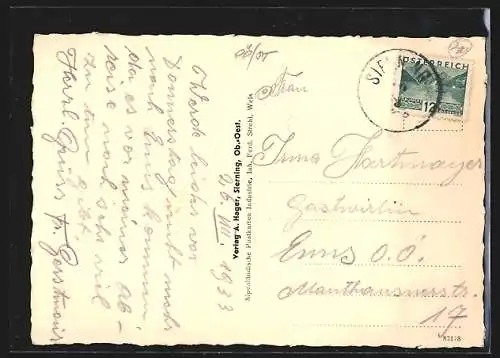 26. VIII. 1933
Werde leider vor
Donnerstag nicht mehr
nach Enns kommen
da es vor meiner Ab-
reise noch sehr viel
zu tun gibt.
Herzl. Grüsse Fr. Gerstmair
Verlag A. Hager, Sierning, Ob.-Oest.
Alpenländische Postkarten Industrie, Inh. Ferd. Strehl, Wels
ÖSTERREICH
12
Frau
Irma Hartmayer
Gastwirtin
Enns O.Ö.
Mauthausnerstr.
17